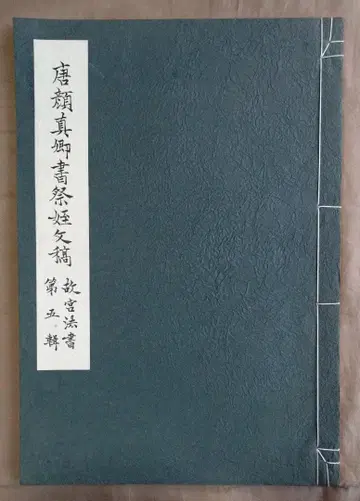 唐顏真卿書祭姪文稿
故宮法書
第五輯